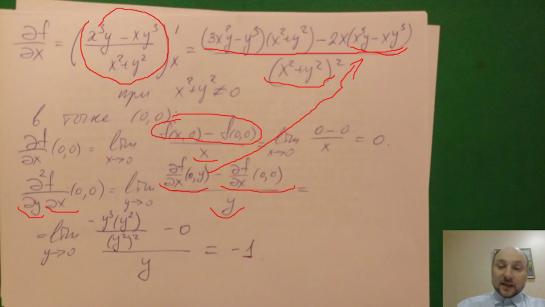 ∂f/∂x = ((x³y − xy³)/(x²+y²))'ₓ = ((3x²y − y³)(x²+y²) − 2x(x³y − xy³))/(x²+y²)²
при x²+y² ≠ 0
в точке (0,0):
∂f/∂x (0,0) = lim x→0 (f(x,0) − f(0,0))/x = lim x→0 (0−0)/x = 0.
∂²f/∂y∂x (0,0) = lim y→0 (∂f/∂x (0,y) − ∂f/∂x (0,0))/y =
= lim y→0 (−y³(y²)/(y²)² − 0)/y = −1.